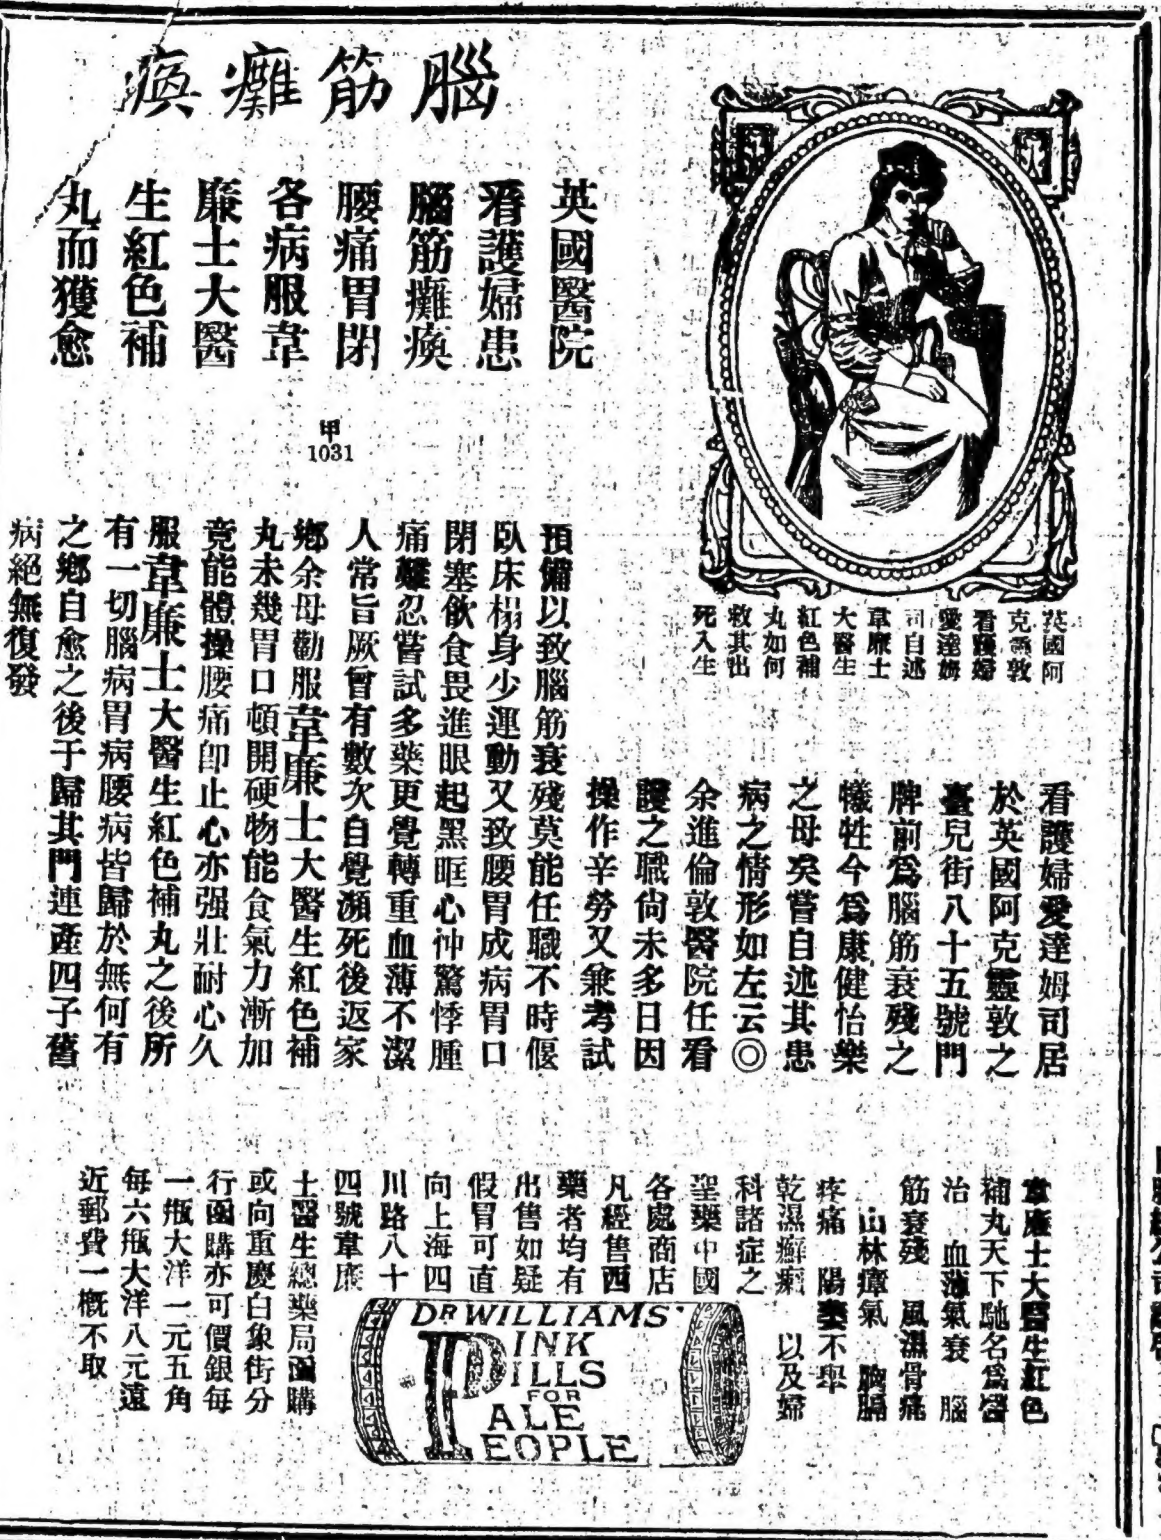 腦筋癱瘓
英國醫院
看護婦患
腦筋癱瘓
腰痛胃閉
各病服韋
廉士大醫
生紅色補
丸而獲愈
甲
1031
英國阿
克靈敦
看護婦
愛達姆
司自述
韋廉士
大醫生
紅色補
丸如何
救其出
死入生
看護婦愛達姆司居
於英國阿克靈敦之
臺兒街八十五號門
牌前爲腦筋衰殘之
犧牲今爲康健怡樂
之母矣嘗自述其患
病之情形如左云◎
余進倫敦醫院任看
護之職尙未多日因
操作辛勞又兼考試
預備以致腦筋衰殘莫能任職不時偃
臥床榻身少運動又致腰胃成病胃口
閉塞飲食畏進眼起黑眶心忡驚悸腫
痛難忍嘗試多藥更覺轉重血薄不潔
人常旨厥曾有數次自覺瀕死後返家
鄉余母勸服韋廉士大醫生紅色補
丸未幾胃口頓開硬物能食氣力漸加
竟能體操腰痛卽止心亦强壯耐心久
服韋廉士大醫生紅色補丸之後所
有一切腦病胃病腰病皆歸於無何有
之鄉自愈之後于歸其門連產四子舊
病絕無復發
韋廉士大醫生紅色
補丸天下馳名爲醫
治 血薄氣衰 腦
筋衰殘 風濕骨痛
山林瘴氣 胸膈
疼痛 陽萎不舉
乾濕癬癩 以及婦
科諸症之
聖藥中國
各處商店
凡經售西
藥者均有
出售如疑
假冒可直
向上海四
川路八十
四號韋廉
士醫生總藥局函購
或向重慶白象街分
行函購亦可價銀每
一瓶大洋一元五角
每六瓶大洋八元遠
近郵費一概不取
DR WILLIAMS'
PINK
PILLS
FOR
PALE
PEOPLE